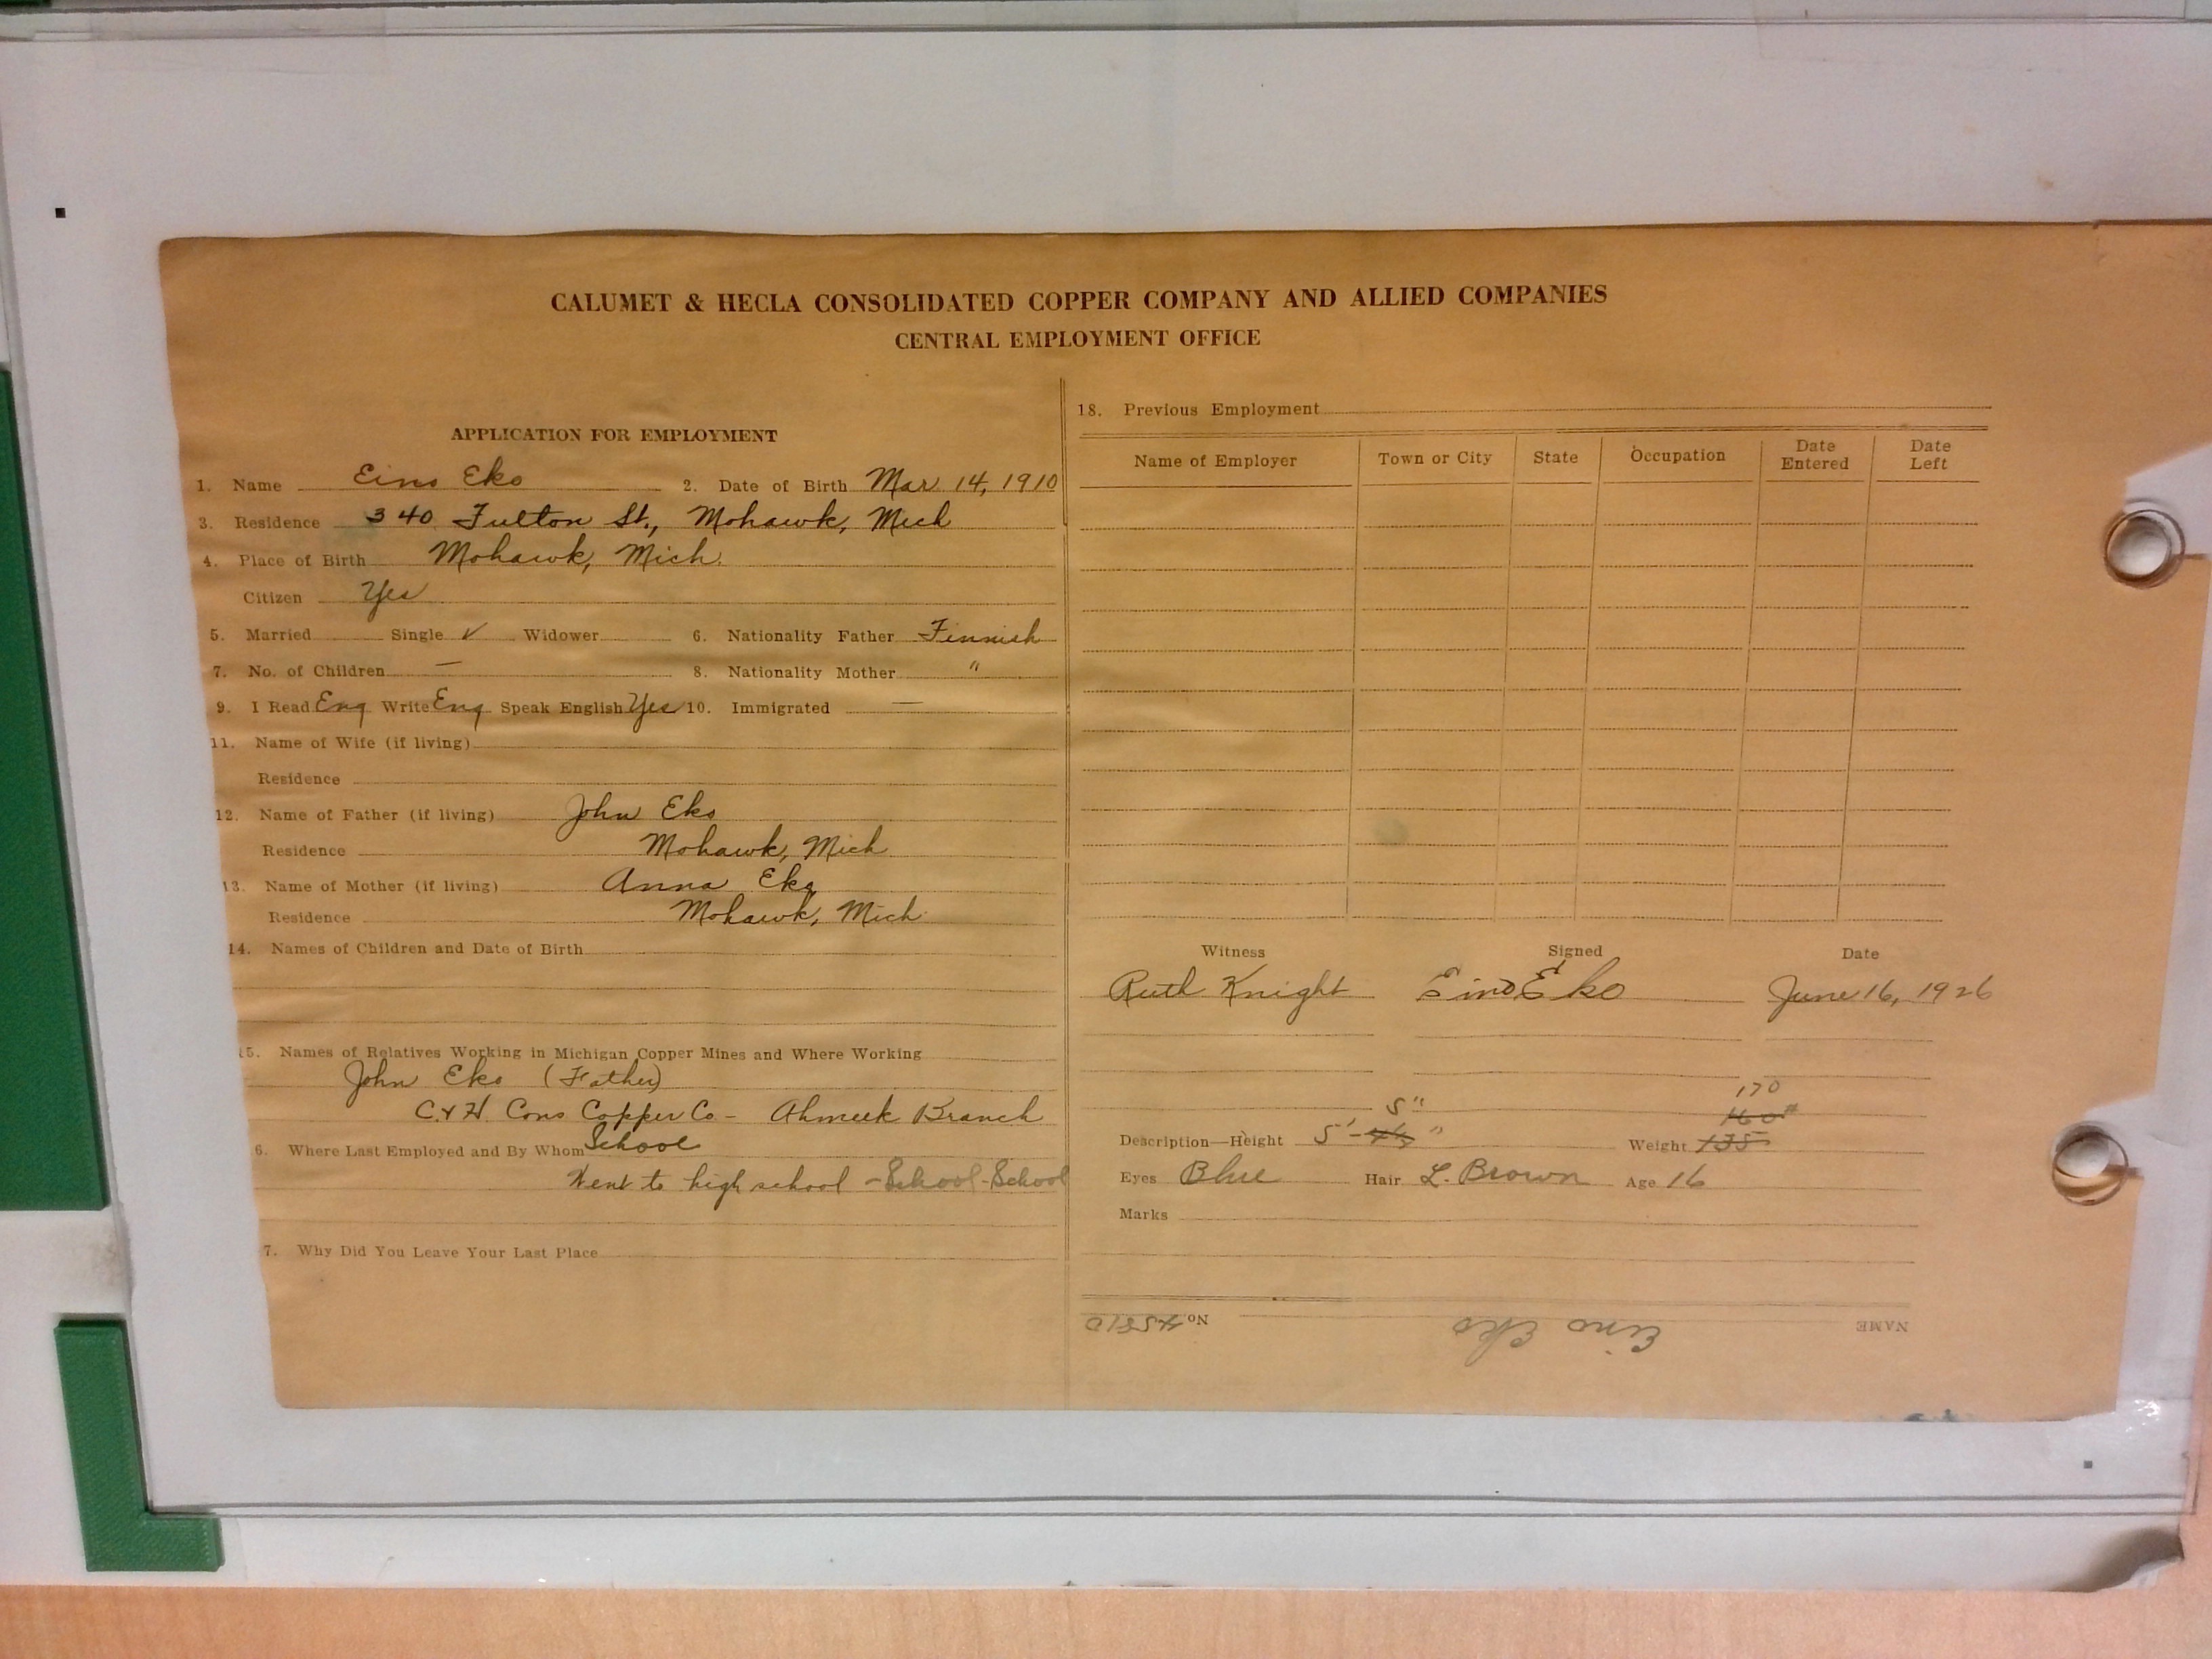 CALUMET & HECLA CONSOLIDATED COPPER COMPANY AND ALLIED COMPANIES
CENTRAL EMPLOYMENT OFFICE
APPLICATION FOR EMPLOYMENT
1. Name Eino Eko 2. Date of Birth Mar 14, 1910
3. Residence 340 Fulton St., Mohawk, Mich
4. Place of Birth Mohawk, Mich.
Citizen Yes
5. Married Single ✓ Widower 6. Nationality Father Finnish
7. No. of Children — 8. Nationality Mother "
9. I Read Eng Write Eng Speak English Yes 10. Immigrated —
11. Name of Wife (if living)
Residence
12. Name of Father (if living) John Eko
Residence Mohawk, Mich
13. Name of Mother (if living) Anna Eko
Residence Mohawk, Mich
14. Names of Children and Date of Birth
15. Names of Relatives Working in Michigan Copper Mines and Where Working
John Eko (Father)
C. & H. Cons Copper Co - Ahmeek Branch
6. Where Last Employed and By Whom School
Went to high school - School - School
7. Why Did You Leave Your Last Place
18. Previous Employment
Name of Employer Town or City State Occupation Date Entered Date Left
Witness Signed Date
Ruth Knight Eino Eko June 16, 1926
5" 170
160#
Description—Height 5'- " Weight 135
Eyes Blue Hair L. Brown Age 16
Marks
NAME Eino Eko No.